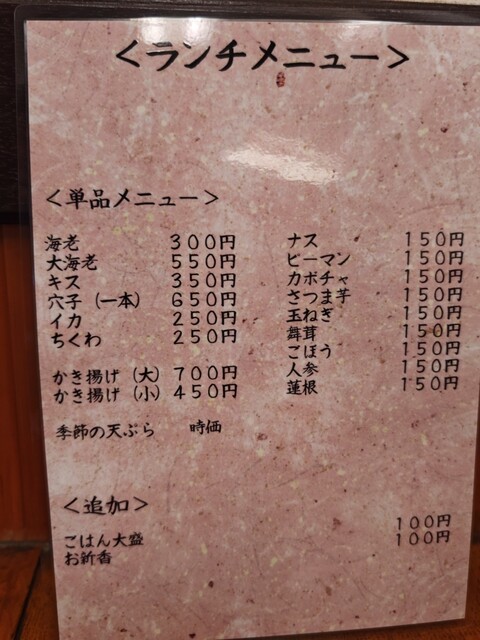 ＜ランチメニュー＞
＜単品メニュー＞
海老 300円
大海老 550円
キス 350円
穴子（一本） 650円
イカ 250円
ちくわ 250円
かき揚げ（大） 700円
かき揚げ（小） 450円
季節の天ぷら 時価
ナス 150円
ピーマン 150円
カボチャ 150円
さつま芋 150円
玉ねぎ 150円
舞茸 150円
ごぼう 150円
人参 150円
蓮根 150円
＜追加＞
ごはん大盛 100円
お新香 100円